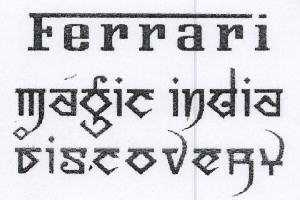 Ferrari
magic india
DISCOVERY